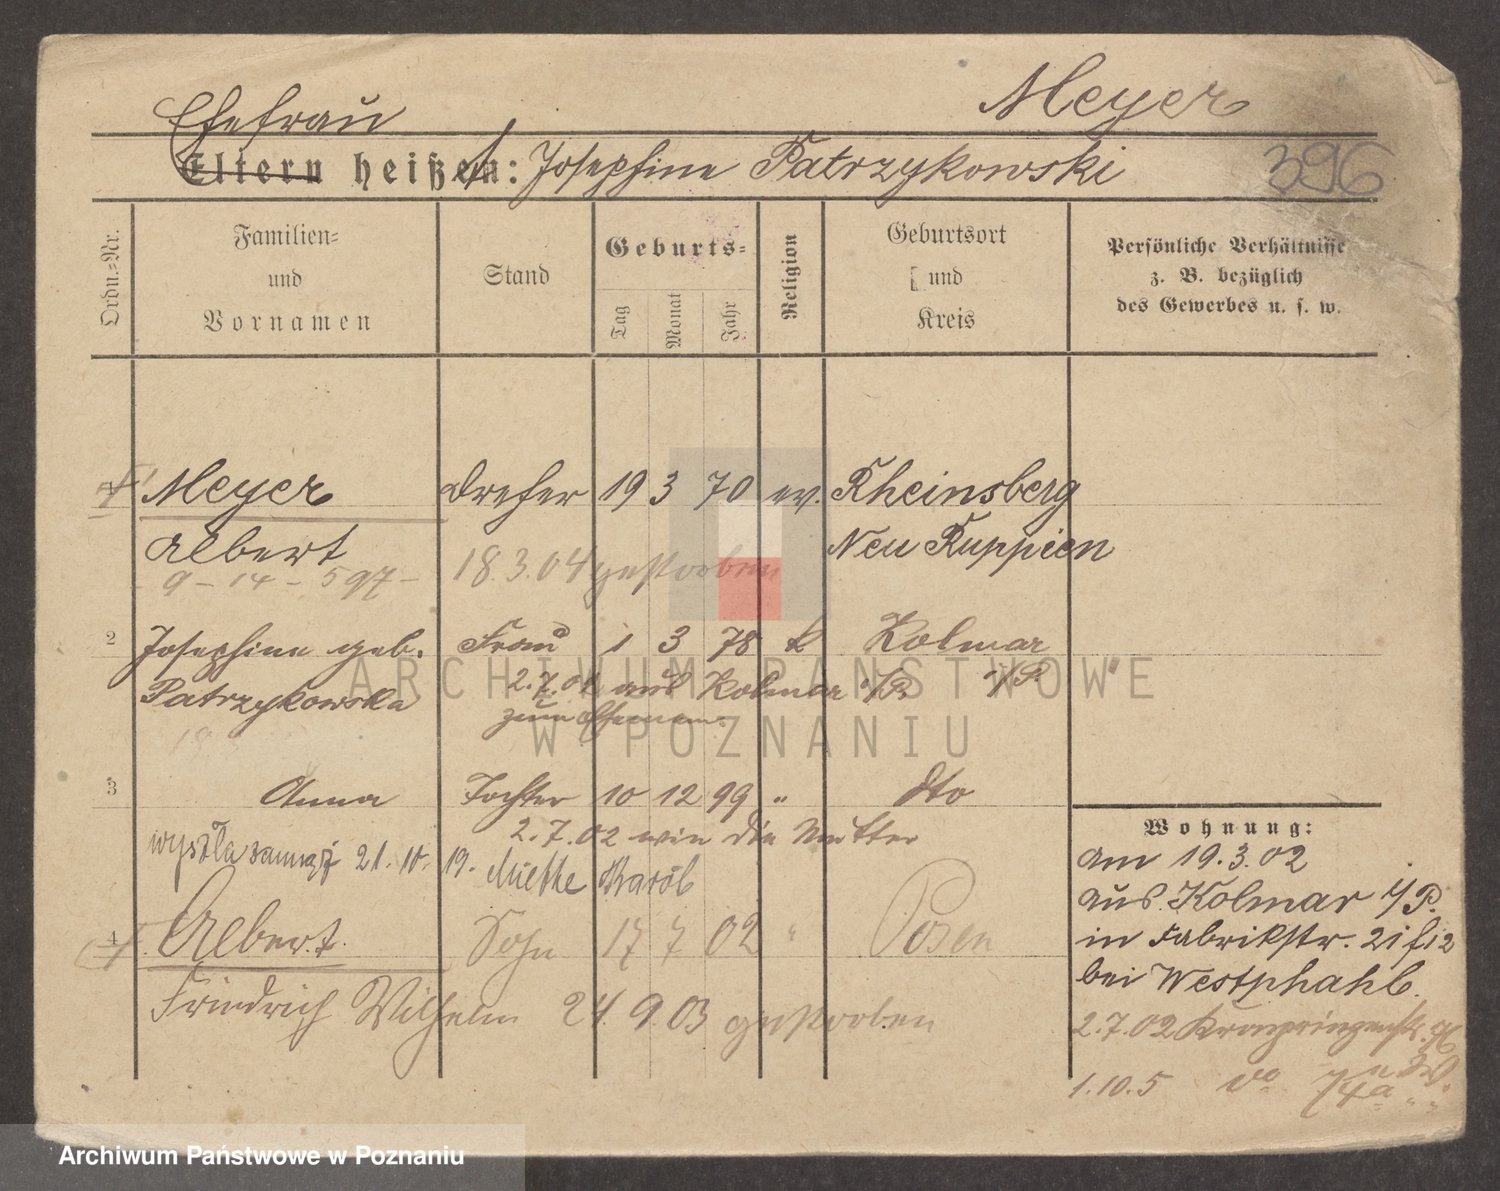 Meyer
Ehefrau
Eltern heißen: Josephine Patrzykowski
396
Ordn.-Nr.
Familien-
und
Vornamen
Stand
Geburts-
Tag
Monat
Jahr
Religion
Geburtsort
und
Kreis
Persönliche Verhältnisse
z. B. bezüglich
des Gewerbes u. s. w.
1 Meyer Dreher 19 3 70 ev. Rheinsberg
Albert Neu Ruppien
9-14-597- 18.3.04 gestorben
2 Josephine geb. Frau 1 3 78 k Kolmar
Patrzykowska 2.7.02 aus Kolmar i/P. i/P.
zum Ehemann
3 Anna Tochter 10 12 99 " dto
2.7.02 wie die Mutter
wyszła zamąż 21.10. 19. Miethe Karól
4 Albert Sohn 17 7 02 " Posen
Friedrich Wilhelm 24.9.03 gestorben
Wohnung:
am 19.3.02
aus Kolmar i/P.
in Fabrikstr.
bei Westphahl.
2.7.02 Kronprinzenstr.
1.10.5 do 74a
ARCHIWUM PAŃSTWOWE
W POZNANIU
Archiwum Państwowe w Poznaniu